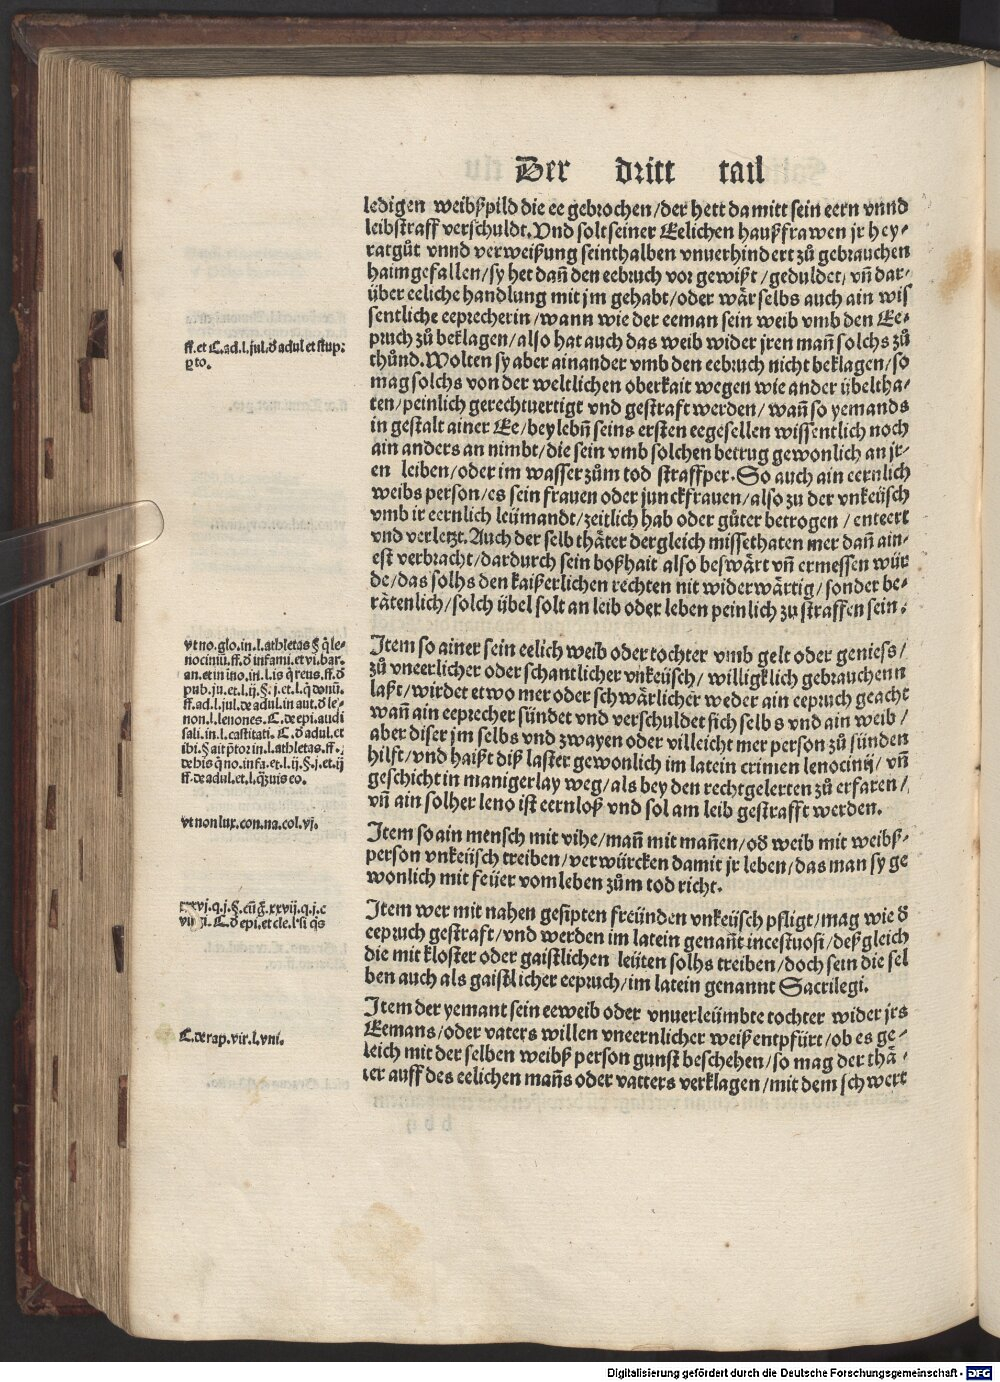 Der dritt tail
ledigen weibßpild die ee gebrochen/der hett damitt sein eern vnnd
leibstraff verschuldt. Vnd solt seiner Eelichen haußfrawen jr hey⸗
ratgůt vnnd verweißung seinthalben vnuerhindert zů gebrauchen
haimgefallen/sy het dañ den eebruch vor gewißt/geduldet/vñ dar⸗
über eeliche handlung mit jm gehabt/oder wär selbs auch ain wis
sentliche eeprecherin/wann wie der eeman sein weib vmb den Ee⸗
pruch zů beklagen/also hat auch das weib wider jren mañ solchs zů
thůnd. Wolten sy aber ainander vmb den eebruch nicht beklagen/so
mag solchs von der weltlichen oberkait wegen wie ander übeltha⸗
ten/peinlich gerechtuertigt vnd gestraft werden/wañ so yemands
in gestalt ainer Ee/bey lebñ seins ersten eegesellen wissentlich noch
ain anders an nimbt/die sein vmb solchen betrug gewonlich an jr⸗
en leiben/oder im wasser zům tod straffper. So auch ain eernlich
weibs person/es sein frauen oder junckfrauen/also zu der vnkeüsch
vmb ir eernlich leümandt/zeitlich hab oder gůter betrogen/enteert
vnd verletzt. Auch der selb thäter dergleich missethaten mer dañ ain⸗
est verbracht/dardurch sein boßhait also beswärt vñ ermessen wür
de/das solhs den kaißerlichen rechten nit widerwärtig/sonder be⸗
rätenlich/solch übel solt an leib oder leben peinlich zu straffen sein.
Item so ainer sein eelich weib oder tochter vmb gelt oder geniess/
zů vneerlicher oder schantlicher vnkeüsch/willigklich gebrauchenn
laßt/wirdet etwo mer oder schwärlicher weder ain eepruch geacht
wañ ain eeprecher sündet vnd verschuldet sich selbs vnd ain weib/
aber diser jm selbs vnd zwayen oder villeicht mer person zů sünden
hilft/vnd haißt diß laster gewonlich im latein crimen lenocinij/vñ
geschicht in manigerlay weg/als bey den rechtgelerten zů erfaren/
vñ ain solher leno ist eernloß vnd sol am leib gestrafft werden.
Item so ain mensch mit vihe/mañ mit mañen/oď weib mit weibß⸗
person vnkeüsch treiben/verwürcken damit jr leben/das man sy ge
wonlich mit feüer vom leben zům tod richt.
Item wer mit nahen gesipten freünden vnkeüsch pfligt/mag wie ď
eepruch gestraft/vnd werden im latein genañt incestuosi/deßgleich
die mit kloster oder gaistlichen leüten solhs treiben/doch sein die sel
ben auch als gaistlicher eepruch/im latein genannt Sacrilegi.
Item der yemant sein eeweib oder vnuerleümbte tochter wider jrs
Eemans/oder vaters willen vneernlicher weiß entpfürt/ob es ge⸗
leich mit der selben weibß person gunst beschehen/so mag der thä⸗
ter auff des eelichen mañs oder vatters verklagen/mit dem schwert
ff. et C. ad. l. jul. ď adul et stup:
ꝑ to.
vt no. glo. in. l. athletas § q̇ le⸗
nociniũ. ff. ď infami. et vi. bar.
an. et in ino. in. l. is q̇ reus. ff. ď
pub. ju. et. l. ij. §. j. et. l. q̇ donũ.
ff. ad. l. jul. de adul. in aut. ď le⸗
non. l. lenones. C. de epi. audi
sali. in. l. castitati. C. ď adul. et
ibi. § ait p̃tor in. l. athletas. ff.
de his q̇ no. infa. et. l. ij. §. j. et. ij
ff. de adul. et. l. q̃zuis eo.
vt non lux. con. na. col. vj.
q. j. §. cũ g̃. xxvij. q. j. c
C. ď epi. et cle. l. si q̇s
C. de rap. vir. l. vni.
Digitalisierung gefördert durch die Deutsche Forschungsgemeinschaft - DFG